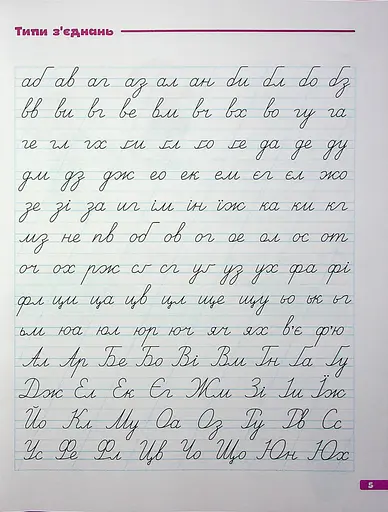 Типи з'єднань
аб ав аг аз ал ан би бл бо бз
вв ви вг ве вм вч вх во гу га
ге гл гх ги гл го ге да де ду
дм дз дж ео ек ем єг єл жо
зе зі за иг їм ін їж ка ки кг
мз не пв об ов ог ое ол ос от
оч ох рж сг уг уз ух фа фі
фл ци ща цв цл ще щу ьо ьк ьг
ьм юа юл юр юч яч ях в'є ф'ю
Ал Ар Бе Бо Ві Вм Гн Га Гу
Дж Ел Ек Єг Жм Зі Іи Їж
Йо Кл Му Оа Оз Пу Рв Сс
Ус Фе Фл Цв Чо Що Юн Юх
5